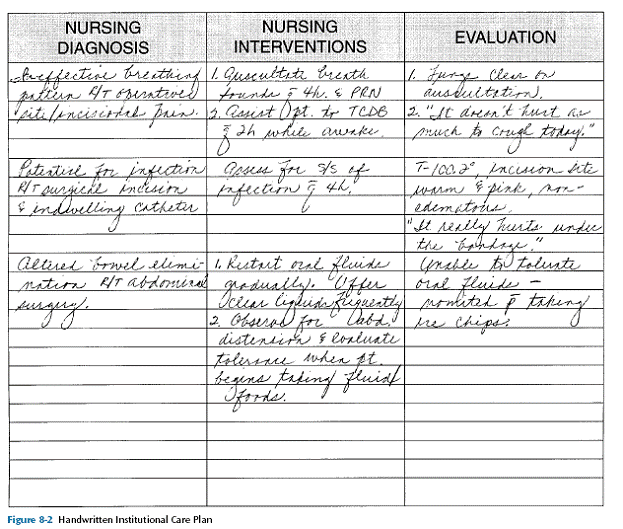 NURSING
DIAGNOSIS
NURSING
INTERVENTIONS
EVALUATION
Ineffective breathing
pattern R/T operative
site/incisional pain.
1. Auscultate breath
sounds q̄ 4h. & PRN
2. Assist pt. to TCDB
q̄ 2h while awake.
1. Lungs clear on
auscultation.
2. "It doesn't hurt as
much to cough today."
Potential for infection
R/T surgical incision
& indwelling catheter
Assess for S/S of
infection q̄ 4h.
T-100.2°, incision site
warm & pink, non-
edematous.
"It really hurts under
the bandage."
Altered bowel elimi-
nation R/T abdominal
surgery.
1. Restart oral fluids
gradually. Offer
clear liquids frequently
2. Observe for abd.
distension & evaluate
tolerance when pt.
begins taking fluids/
foods.
Unable to tolerate
oral fluids –
vomited p̄ taking
ice chips.
Figure 8-2 Handwritten Institutional Care Plan